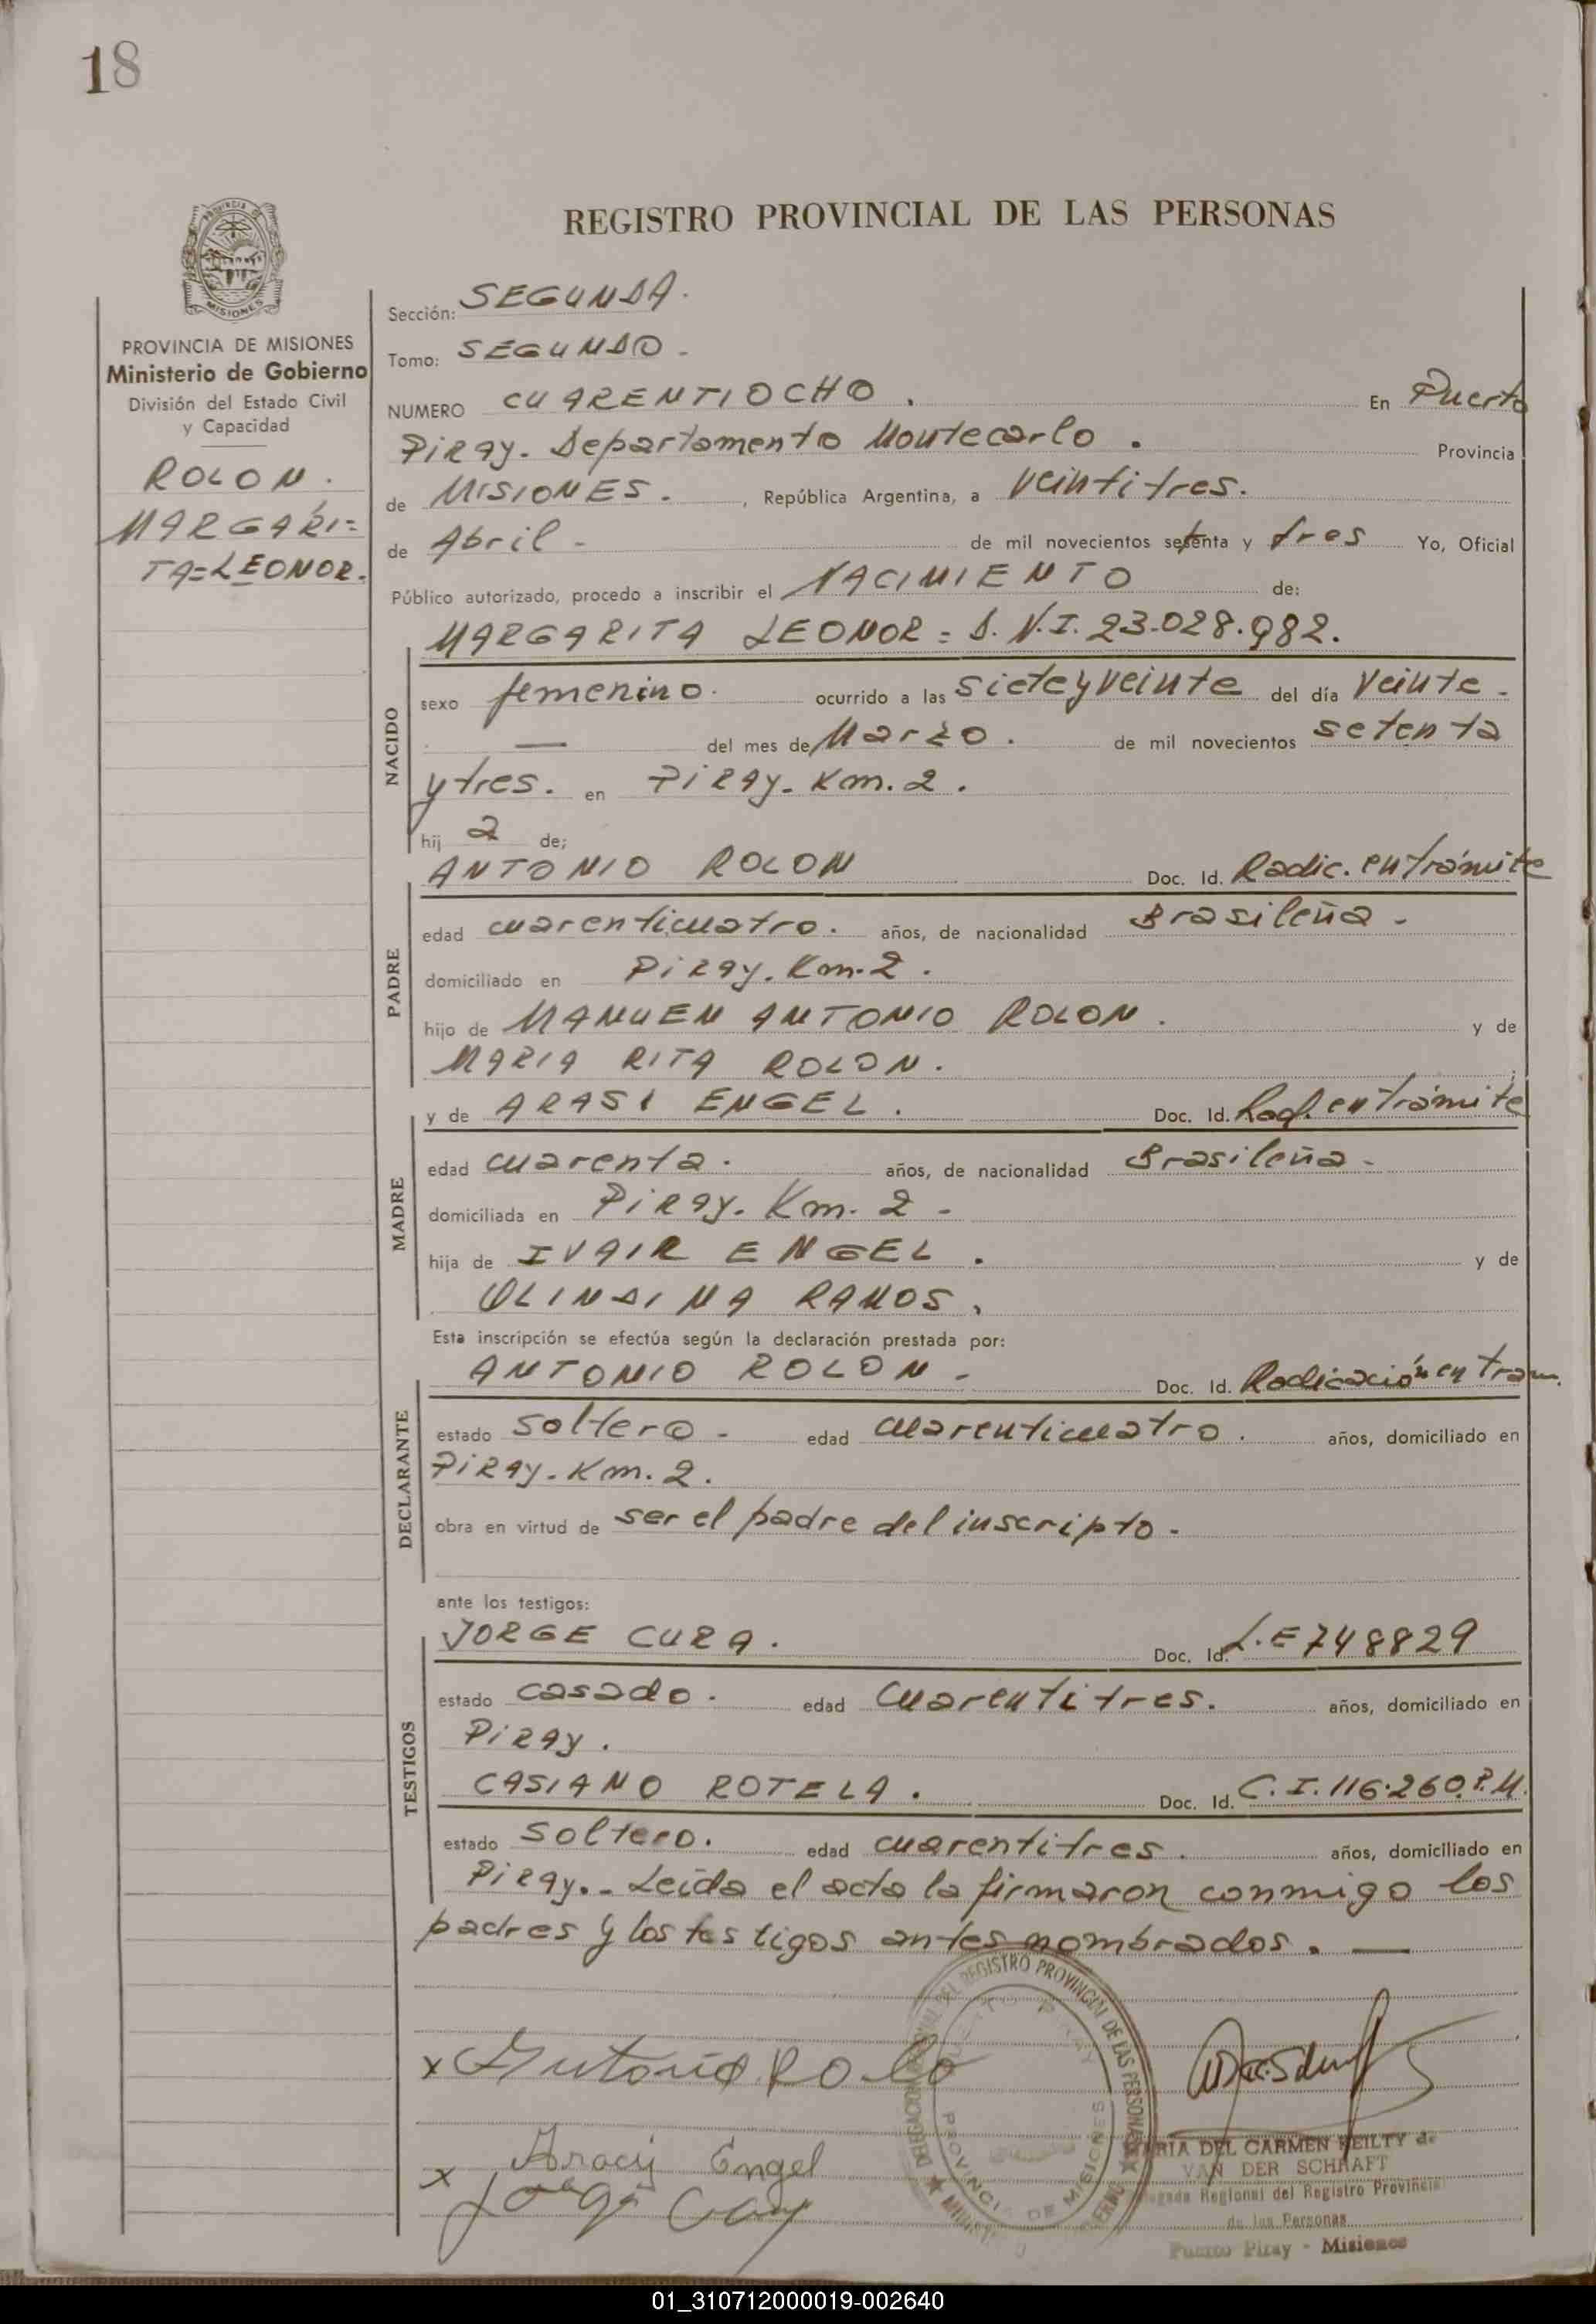 18
REGISTRO PROVINCIAL DE LAS PERSONAS
PROVINCIA DE MISIONES
Ministerio de Gobierno
División del Estado Civil
y Capacidad
ROLON.
MARGARI=
TA=LEONOR.
Sección: SEGUNDA.
Tomo: SEGUNDO.
NUMERO CUARENTIOCHO. En Puerto
Piray. Departamento Montecarlo. Provincia
de MISIONES. , República Argentina, a veintitres.
de Abril - de mil novecientos setenta y tres Yo, Oficial
Público autorizado, procedo a inscribir el NACIMIENTO de:
MARGARITA LEONOR = D.N.I. 23.028.982.
NACIDO
sexo femenino. ocurrido a las siete y veinte del día veinte -
— del mes de Marzo. de mil novecientos setenta
y tres. en Piray. Km. 2.
hij a de;
ANTONIO ROLON Doc. Id. Radic. en trámite
PADRE
edad cuarenticuatro. años, de nacionalidad Brasileña -
domiciliado en Piray. Km. 2.
hijo de MANUEN ANTONIO ROLON. y de
MARIA RITA ROLON. ;
y de ARASI ENGEL. Doc. Id. Rad. en trámite
MADRE
edad cuarenta. años, de nacionalidad Brasileña -
domiciliada en Piray. Km. 2 -
hija de IVAIR ENGEL. y de
OLINDINA RAMOS.
Esta inscripción se efectúa según la declaración prestada por:
ANTONIO ROLON - Doc. Id. Radicación en tram.
DECLARANTE
estado soltero - edad cuarenticuatro. años, domiciliado en
Piray. Km. 2.
obra en virtud de ser el padre del inscripto -
ante los testigos:
JORGE CURA. Doc. Id. L.E 748829
TESTIGOS
estado casado. edad cuarentitres. años, domiciliado en
Piray.
CASIANO ROTELA. Doc. Id. C.I. 116.260 P.M.
estado soltero. edad cuarentitres. años, domiciliado en
Piray.- Leída el acta la firmaron conmigo los
padres y los testigos antes nombrados. —
DELEGACION REGIONAL DEL REGISTRO PROVINCIAL DE LAS PERSONAS
PROVINCIA DE MISIONES
x Antonio Rolo
x Aracy Engel
MARIA DEL CARMEN KEILTY de
VAN DER SCHRAFT
Delegada Regional del Registro Provincial
de las Personas
Puerto Piray - Misiones
01_310712000019-002640